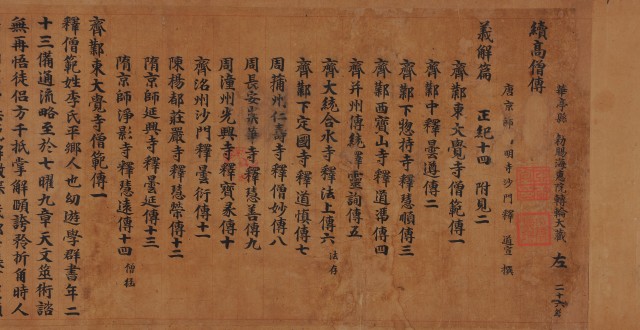 續高僧傳
華亭縣 勑賜海惠院轉輪大藏 左
唐京師 明寺沙門釋 道宣 撰
義解篇 正紀十四 附見二
齊鄴東大覺寺僧範傳一
齊鄴中釋曇遵傳二
齊鄴下惣持寺釋慧順傳三
齊鄴西寶山寺釋道憑傳四
齊并州僧統釋靈詢傳五
齊大統合水寺釋法上傳六 法存
齊鄴下定國寺釋道慎傳七
周蒲州仁壽寺釋僧妙傳八
周長安崇華寺釋慧善傳九
周潼州光興寺釋寶彖傳十
齊洺州沙門釋曇衍傳十一
陳楊都莊嚴寺釋慧榮傳十二
隋京師延興寺釋曇延傳十三
隋京師淨影寺釋慧遠傳十四 僧猛
齊鄴東大覺寺僧範傳一
釋僧範姓李氏平鄉人也幼遊學群書年二
十三備通流略至於七曜九章天文筮術諮
無再悟徒侶方千抵掌解頤誇矜折角時人